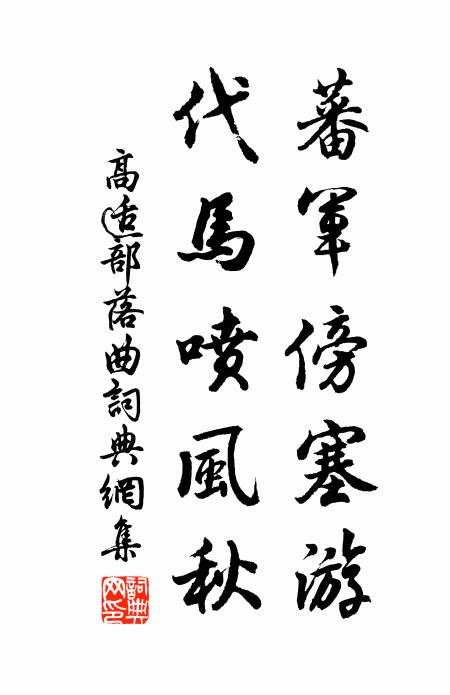 蕃軍傍塞游
代馬噴風秋
高适部落曲詞典網集
詞典網印